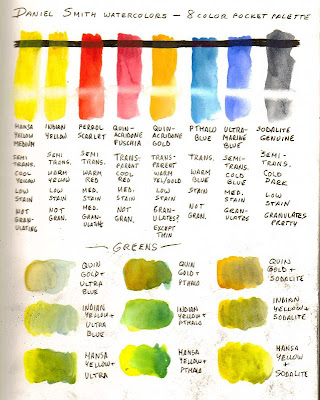 DANIEL SMITH WATERCOLORS - 8 COLOR POCKET PALETTE
HANSA YELLOW MEDIUM
SEMI-TRANS.
COOL YELLOW
LOW STAIN
NOT GRAN-ULATING
INDIAN YELLOW
SEMI-TRANS.
WARM YELLOW
LOW STAIN
NOT GRAN.
PERROL SCARLET
SEMI-TRANS.
WARM RED
MED. STAIN
MED. GRAN-ULATING
QUIN-ACRIDONE FUSCHIA
TRANS-PARENT
COOL RED
MED. STAIN
NOT GRAN.
QUIN-ACRIDONE GOLD
TRANS-PARENT
WARM YEL/GOLD
LOW STAIN
GRAN-ULATES?
EXCEPT THIN
PTHALO BLUE
TRANS.
WARM BLUE
MED. STAIN
NOT GRAN.
ULTRA-MARINE BLUE
SEMI-TRANS.
COLD BLUE
MED. STAIN
GRAN-ULATES
SODALITE GENUINE
SEMI-TRANS.
COLD DARK
LOW STAIN
GRANULATES PRETTY
GREENS
QUIN GOLD + ULTRA BLUE
QUIN GOLD + PTHALO
QUIN GOLD + SODALITE
INDIAN YELLOW + ULTRA BLUE
INDIAN YELLOW + PTHALO
INDIAN YELLOW + SODALITE
HANSA YELLOW + ULTRA
HANSA YELLOW + PTHALO
HANSA YELLOW + SODALITE